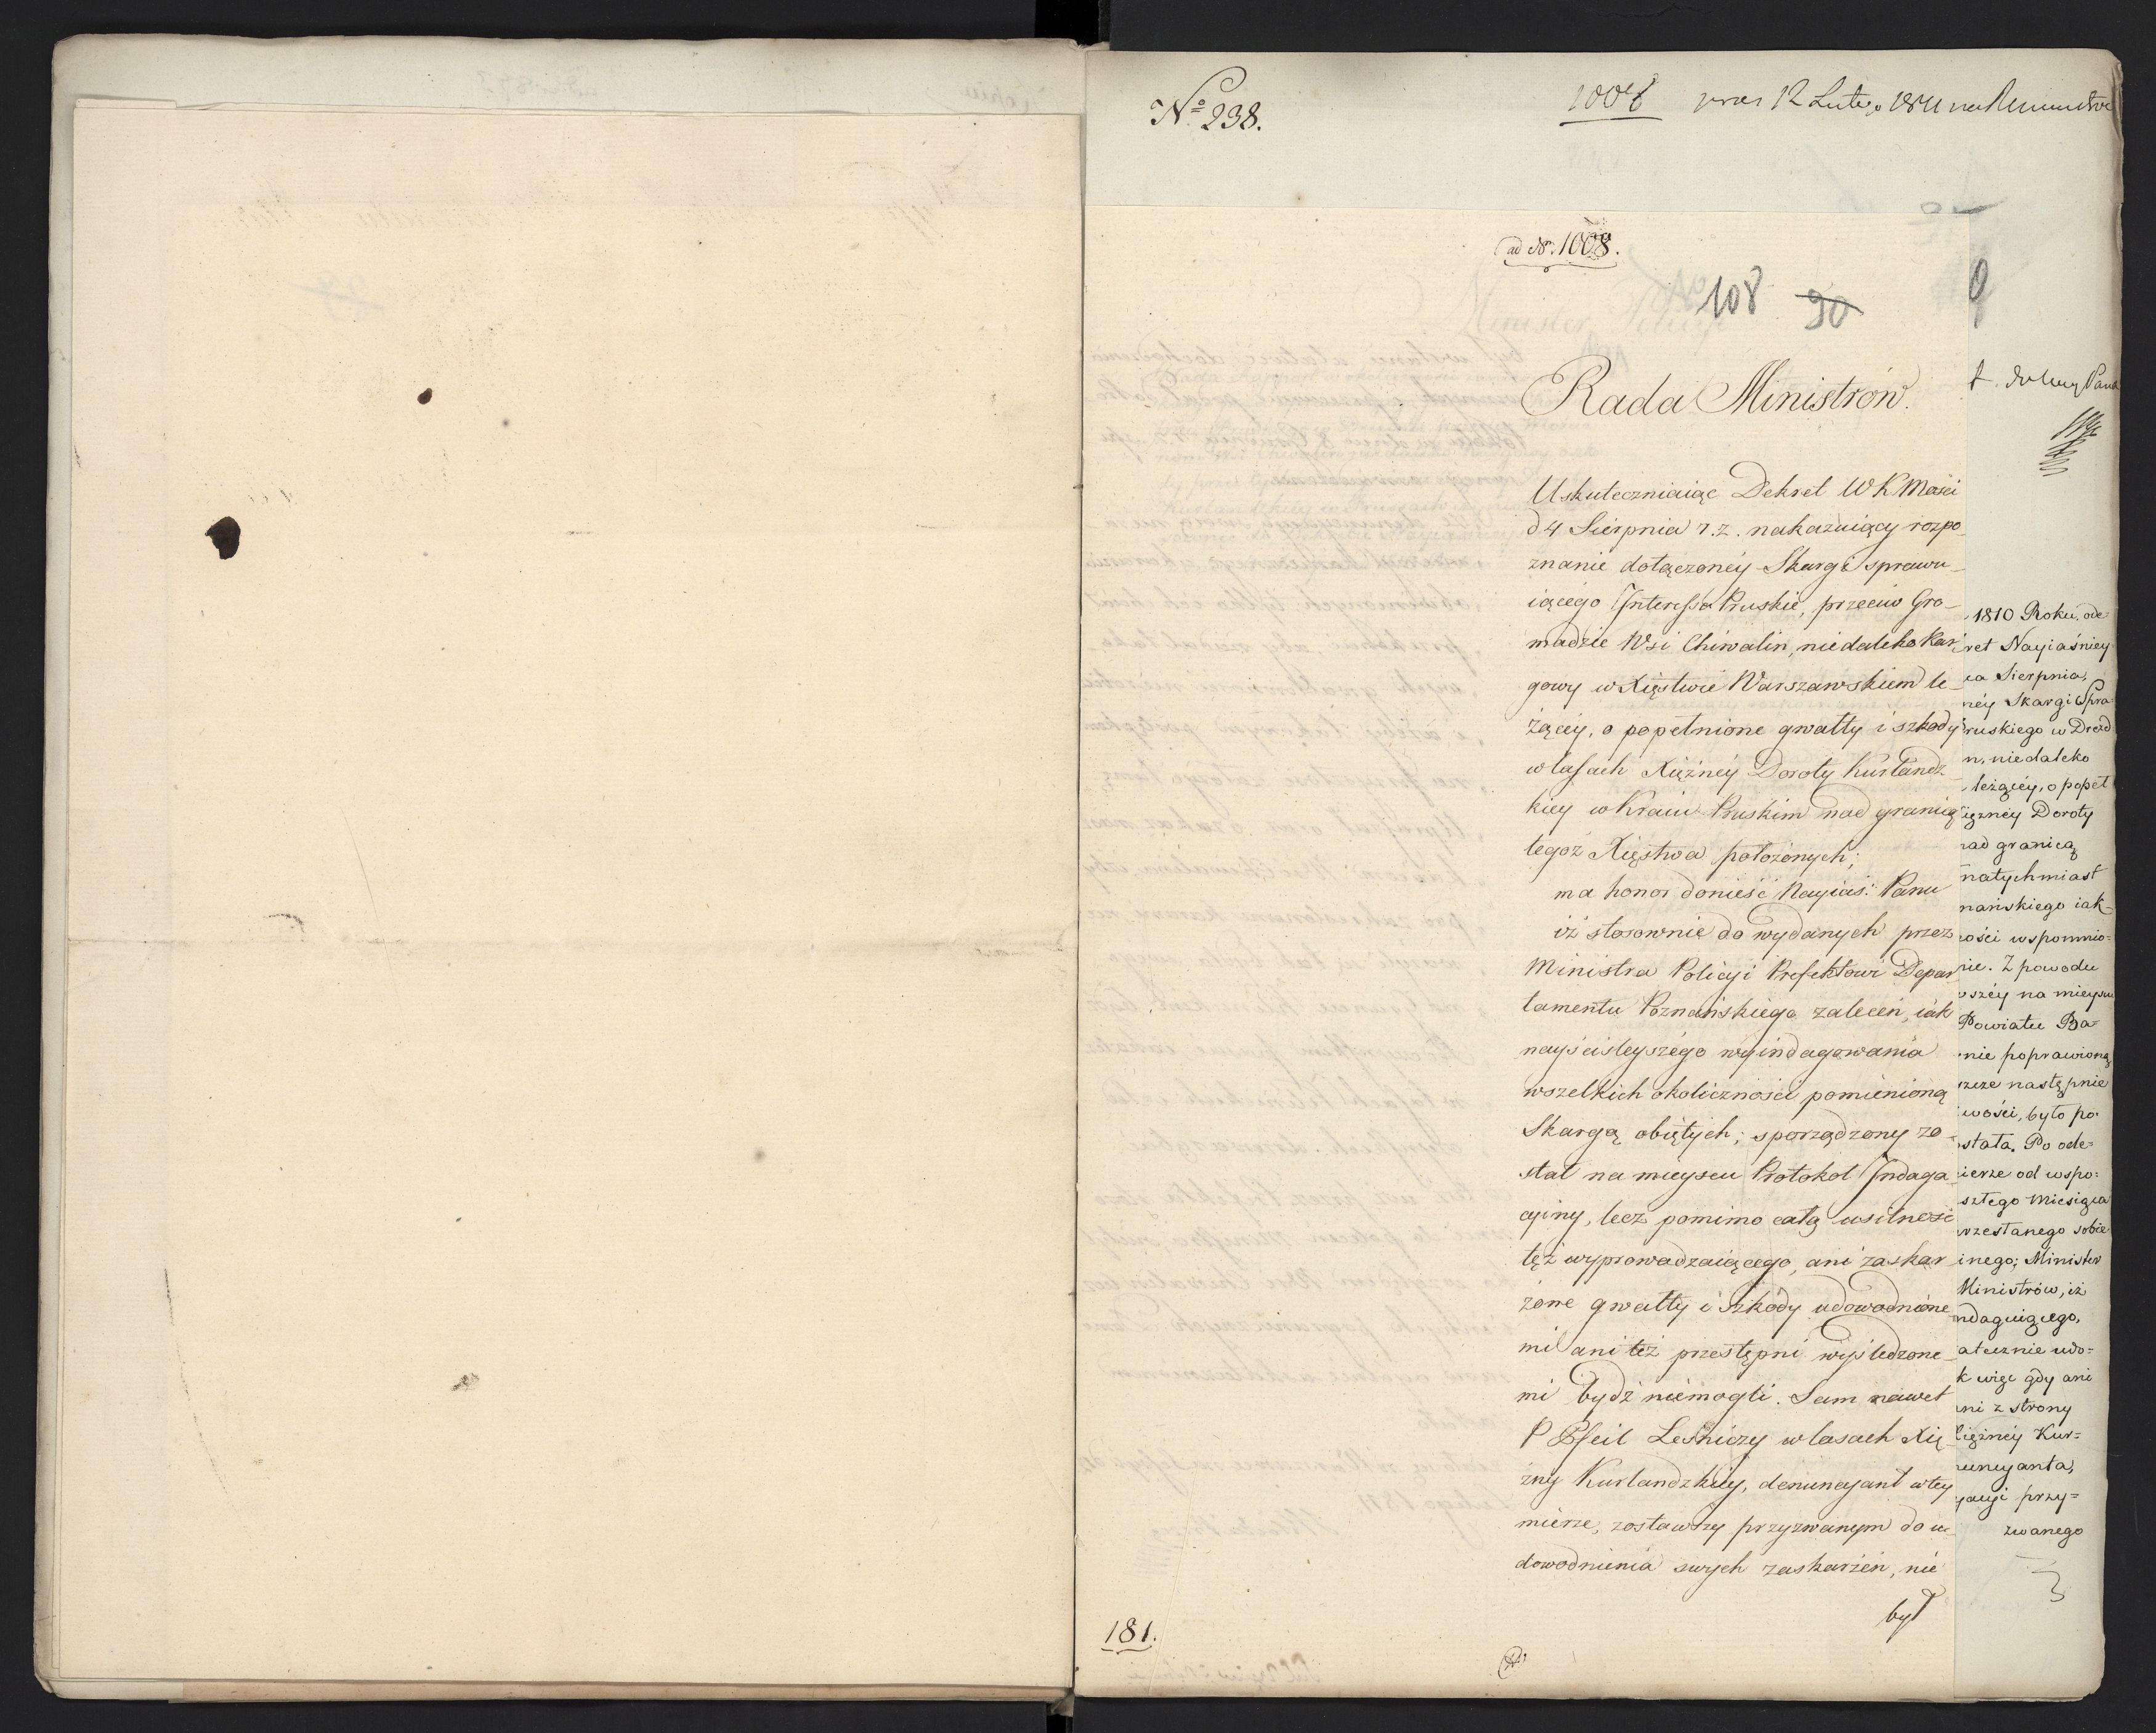 No 238.
1008 prae 12 Lutego 1811
ad No. 1008.
108 90
Rada Ministrów.
Uskuteczniaiąc Dekret WKMości
d 4 Sierpnia r.z. nakazuiący rozpo-
znanie dołączonéy Skargi sprawu-
iącego Interessa Pruskie, przeciw Gro-
madzie Wsi Chwalin, niedaleko Kar-
gowy w Xięstwie Warszawskiem le-
żącéy, o popełnione gwałty i szkody
w lasach Xiężnéy Doroty Kurlandz-
kiey w Kraiu Pruskim nad granicą
tegoż Xięstwa położonych;
ma honor donieść Nayiaś: Panu
iż stosownie do wydanych przez
Ministra Policyi Prefektowi Depar-
tamentu Poznańskiego zaleceń, iak
nayściśleyszégo wyindagowania
wszelkich okoliczności pomienioną
Skargą obiętych; sporządzony zo-
stał na mieyscu Protokoł Indaga-
cyiny, lecz pomimo całą usilność
téż wyprowadzaiącego, ani zaskar-
żone gwałty i szkody udowodnione-
mi ani też przestępni wyśledzone-
mi bydź niemogli. Sam nawet
P Pfeil Leśniczy w lasach Xię-
żny Kurlandzkiéy, denuncyant w tey
mierze, zostawszy przyzwanym do u-
dowodnienia swych zaskarżeń, nie
był
181.
1810 Roku, ode-
ret Nayiaśniey
ca Sierpnia,
néy Skargi Spra-
ruskiego w Drezd
n, niedaleko
leżącéy, o popeł
iężnéy Doroty
nad granicą
natychmiast
nańskiego iak-
ości wspomnio-
nie. Z powodu
wszéy na mieyscu
Powiatu Ba-
nie poprawioną
szcze następnie
wości, było po-
stała. Po ode-
ierze od wspo-
szłego Miesiąca
rzesłanego sobie
inego; Minister
Ministrów, iż
ndaguiącego,
atecznie udo-
k więc gdy ani
ani z strony
Xiężnéy Kur-
nuncyanta,
gacyi przy-
zwanego